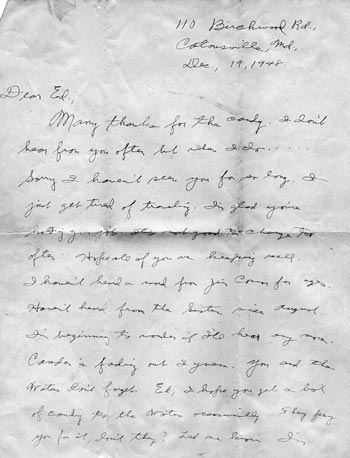 110 Birchwood Rd.,
Catonsville, Md.
Dec, 19, 1948.
Dear Ed.,
Many thanks for the candy. I don't
hear from you often but when I do.....
Sorry I haven't seen you for so long. I
just get tired of traveling. I'm glad you're
job. It's not good to change too
often. Hope all of you are keeping well.
I haven't heard a word from Jim for ages.
Haven't heard from the since August.
I'm beginning to wonder if I'll hear any more.
Camden is fading out I guess. You and the
don't forget. Ed, I hope you get a box
of candy to the occasionally. They pay
you for it, don't they? Let me know I'm